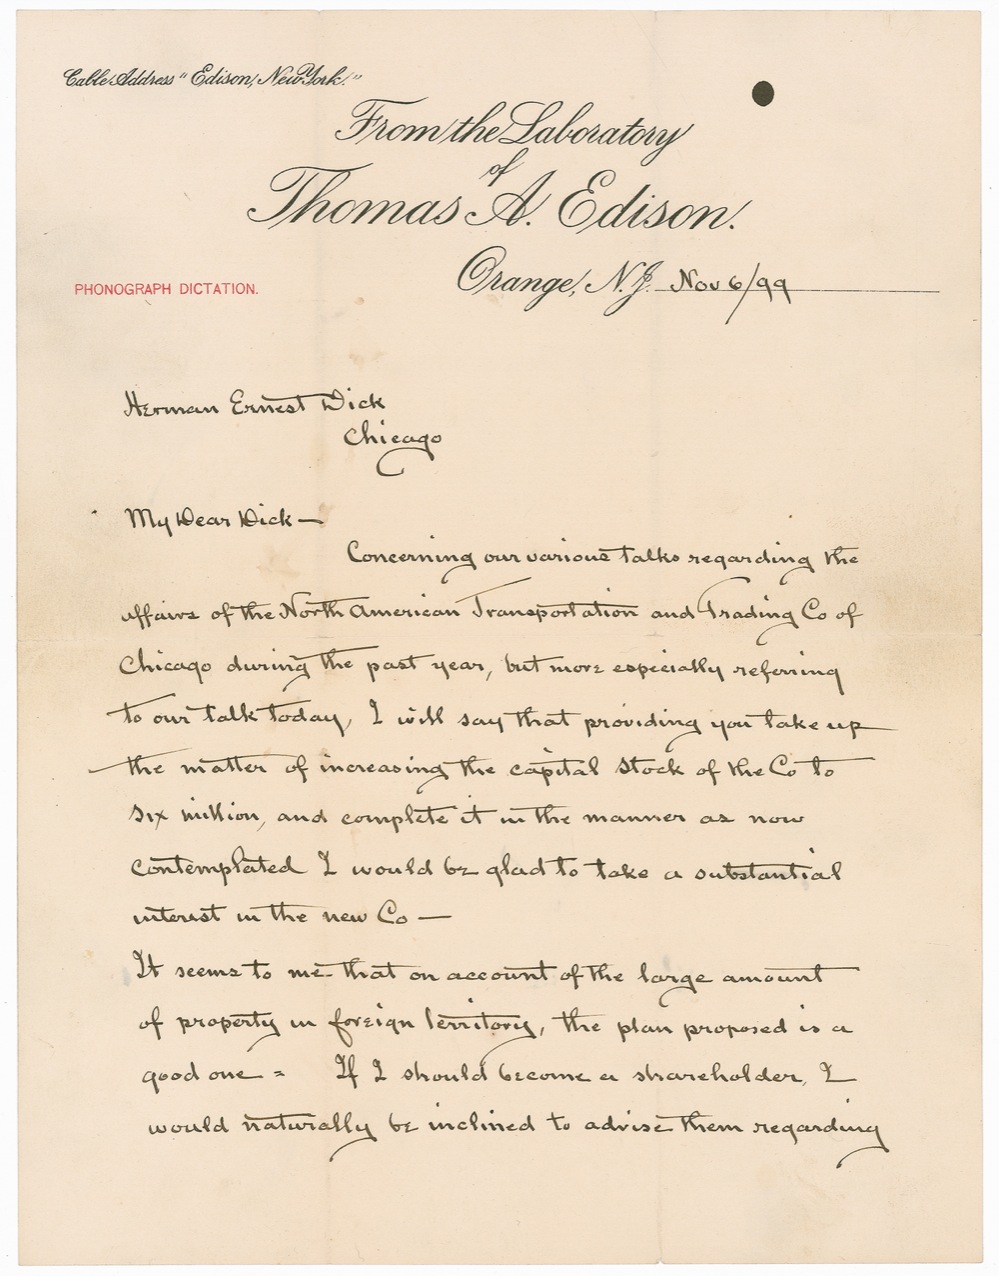 Cable Address "Edison, New York."
From the Laboratory
of
Thomas A. Edison.
PHONOGRAPH DICTATION.
Orange, N.J. Nov 6/99
Herman Ernest Dick
Chicago
My Dear Dick—
Concerning our various talks regarding the
affairs of the North American Transportation and Trading Co of
Chicago during the past year, but more especially referring
to our talk today, I will say that providing you take up
the matter of increasing the capital stock of the Co to
six million, and complete it in the manner as now
contemplated I would be glad to take a substantial
interest in the new Co —
It seems to me that on account of the large amount
of property in foreign territory, the plan proposed is a
good one = If I should become a shareholder, I
would naturally be inclined to advise them regarding